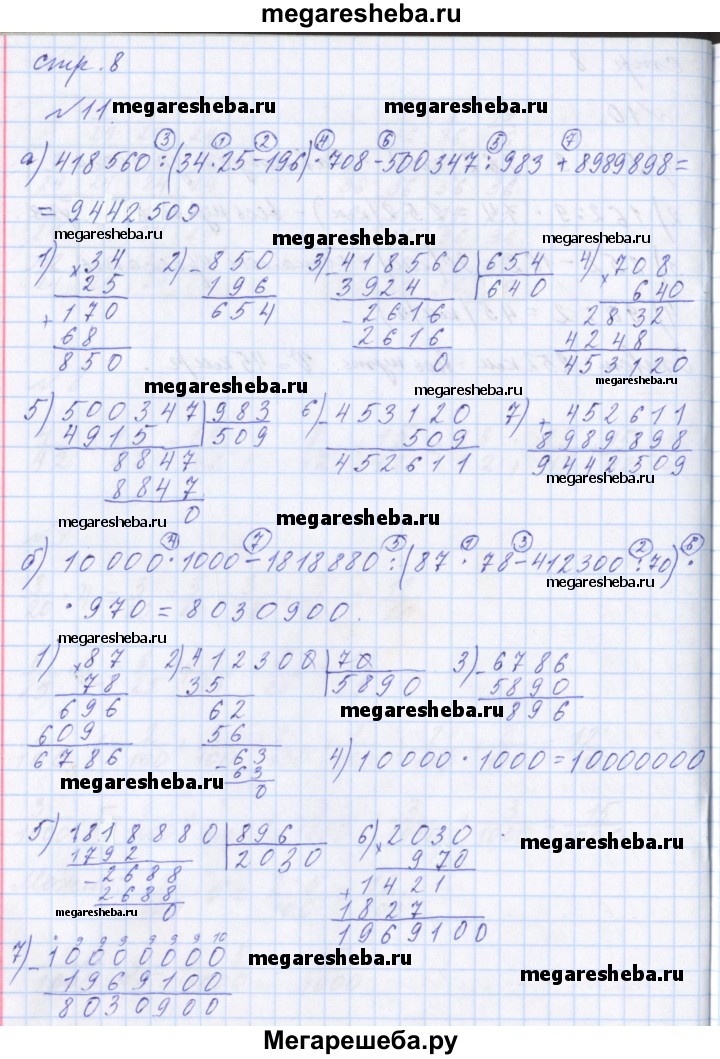 megaresheba.ru
стр. 8
№11. megaresheba.ru megaresheba.ru
3 1 2 4 6 5 7
а) 418560 : (34 · 25 - 196) · 708 - 500347 : 983 + 8989898 =
= 9442509
megaresheba.ru megaresheba.ru megaresheba.ru
1) × 34 2) - 850 3) - 418560 | 654 4) × 708
25 196 3924 640 640
+ 170 654 - 2616 2832
68 2616 4248
850 0 453120
megaresheba.ru megaresheba.ru megaresheba.ru
5) 500347 | 983 6) - 453120 7) + 452611
4915 509 509 8989898
8847 452611 9442509
8847
0
megaresheba.ru megaresheba.ru megaresheba.ru
4 7 5 1 3 2 6
б) 10000 · 1000 - 1818880 : (87 · 78 - 412300 : 70) ·
megaresheba.ru
· 970 = 8030900.
megaresheba.ru
1) × 87 2) - 412300 | 70 3) - 6786
78 35 5890 5890
696 62 896
609 56
6786 - 63 4) 10000 · 1000 = 10000000
63
0
megaresheba.ru megaresheba.ru
5) 1818880 | 896 6) × 2030
1792 2030 970
- 2688 + 1421
2688 1827
0 1969100
megaresheba.ru megaresheba.ru
9 9 9 9 9 9 10
7) - 10000000
1969100
8030900
megaresheba.ru megaresheba.ru
Мегарешеба.ру